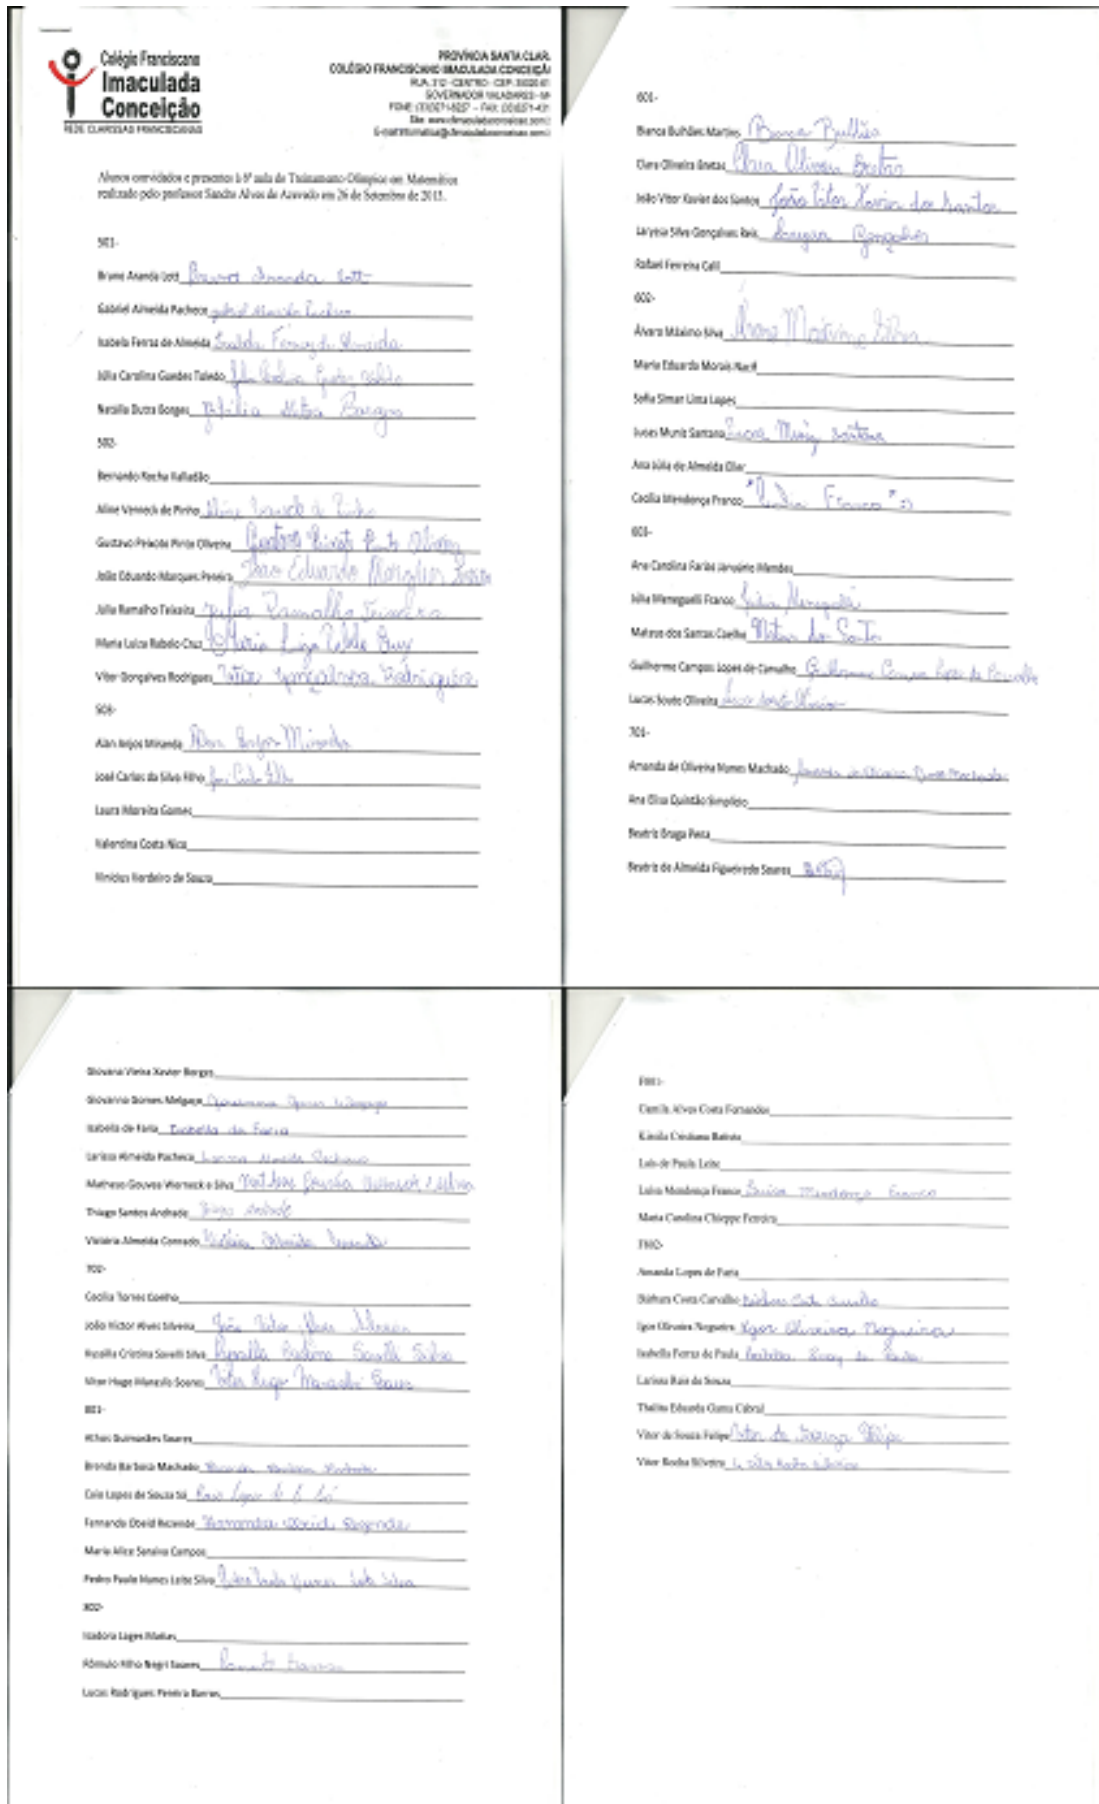 Colégio Franciscano
Imaculada
Conceição
REDE CLARISSAS FRANCISCANAS
PROVÍNCIA SANTA CLAR
COLÉGIO FRANCISCANO IMACULADA CONCEIÇÃ
RUA 312 - CENTRO - CEP:
GOVERNADOR VALADARES - M
Alunos convidados e presentes à 6ª aula de Treinamento Olímpico em Matemática
realizado pelo professor Sandro Alves de Azevedo em 26 de Setembro de 2015.
501-
Bruno Ananda Lott Ananda Lott
Gabriel Almeida Pacheco Gabriel Almeida Pacheco
Isabela Ferraz de Almeida Isabela Ferraz de Almeida
Júlia Carolina Guedes Toledo
Natália Dutra Borges Natália Dutra Borges
502-
Bernardo Rocha Valladão
Aline Verneck de Pinho Aline
Gustavo Peixoto Pinto Oliveira Gustavo Peixoto Pinto Oliveira
João Eduardo Marques Pereira João Eduardo Marques Pereira
Julia Ramalho Teixeira Julia Ramalho Teixeira
Maria Luiza Rabelo Cruz Maria
Vitor Gonçalves Rodrigues Vitor Gonçalves Rodrigues
503-
Alan Anjos Miranda Alan Anjos Miranda
José Carlos da Silva Filho
Laura Moreira Gomes
Valentina Costa Nico
Vinicius Verdeiro de Souza
601-
Bianca Bulhões Martins Bianca Bulhões
Clara Oliveira Bretas Clara Oliveira Bretas
João Vitor Xavier dos Santos João Vitor Xavier dos Santos
Laryssa Silva Gonçalves Reis Laryssa Gonçalves
Rafael Ferreira Calil
602-
Álvaro Máximo Silva Álvaro Máximo Silva
Maria Eduarda Morais Nacif
Sofia Siman Lima Lopes
Lucas Muniz Santana Lucas Muniz Santana
Ana Júlia de Almeida
Cecília Mendonça Franco Franco
603-
Ana Carolina Farias Januário Mendes
Júlia Meneguelli Franco Júlia Meneguelli
Mateus dos Santos Coelho Mateus dos Santos
Guilherme Campos Lopes de Carvalho Guilherme Campos Lopes de Carvalho
Lucas Souto Oliveira Lucas Souto Oliveira
701-
Amanda de Oliveira Nunes Machado Amanda de Oliveira Nunes Machado
Ana Elisa Quintão Simplício
Beatriz Braga Pena
Beatriz de Almeida Figueiredo Soares
Giovana Vieira Xavier Borges
Giovanna Gomes Melgaço
Isabella de Faria Isabella de Faria
Larissa Almeida Pacheco Larissa Almeida Pacheco
Matheus Gouvea Werneck e Silva Matheus Gouvêa Werneck e Silva
Thiago Santos Andrade Thiago Andrade
Vitória Almeida Conrado Vitória Almeida Conrado
702-
Cecília Torres Coelho
João Victor Alves Silveira João Victor Alves Silveira
Cristina Savelli Silva
Vitor Hugo Soares Vitor Hugo
801-
Athos Guimarães Soares
Brenda Barbosa Machado Brenda Barbosa Machado
Caio Lopes de Souza Sá Caio Lopes de S. Sá
Fernanda Obeid Rezende Fernanda Obeid Rezende
Maria Alice Saraiva Campos
Pedro Paulo Nunes Leite Silva Pedro Paulo Nunes Leite Silva
802-
Isadora Lages Matias
Rômulo Filho Negri Soares
Lucas Rodrigues Pereira Barros
Camila Alves Costa Fernandes
Kássila Cristiana Batista
Laís de Paula Leite
Luísa Mendonça Franco Luísa Mendonça Franco
Maria Carolina Chieppe Ferreira
Amanda Lopes de Faria
Bárbara Costa Carvalho Bárbara Costa Carvalho
Igor Oliveira Nogueira Igor Oliveira Nogueira
Isabella Ferraz de Paula Isabella Ferraz de Paula
Larissa Ruis de Souza
Thalita Eduarda Gama Cabral
Vitor de Souza Felipe Vitor de Souza Felipe
Vitor Rocha Silveira Vitor Rocha Silveira